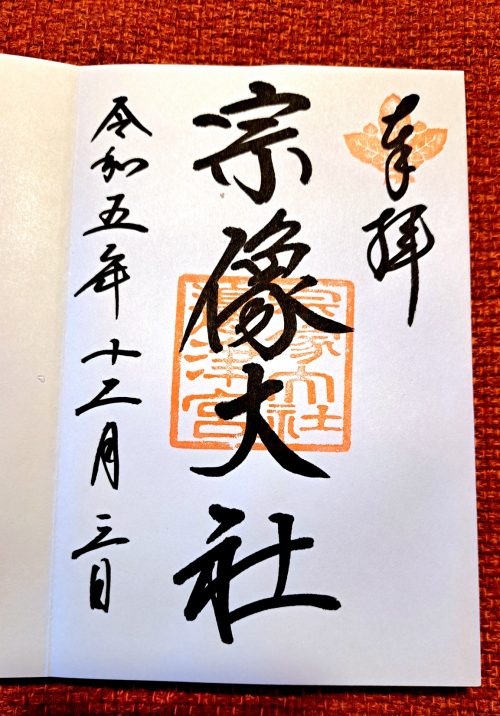 奉拝
宗像大社
宗像大社
邊津宮
令和五年十二月三日